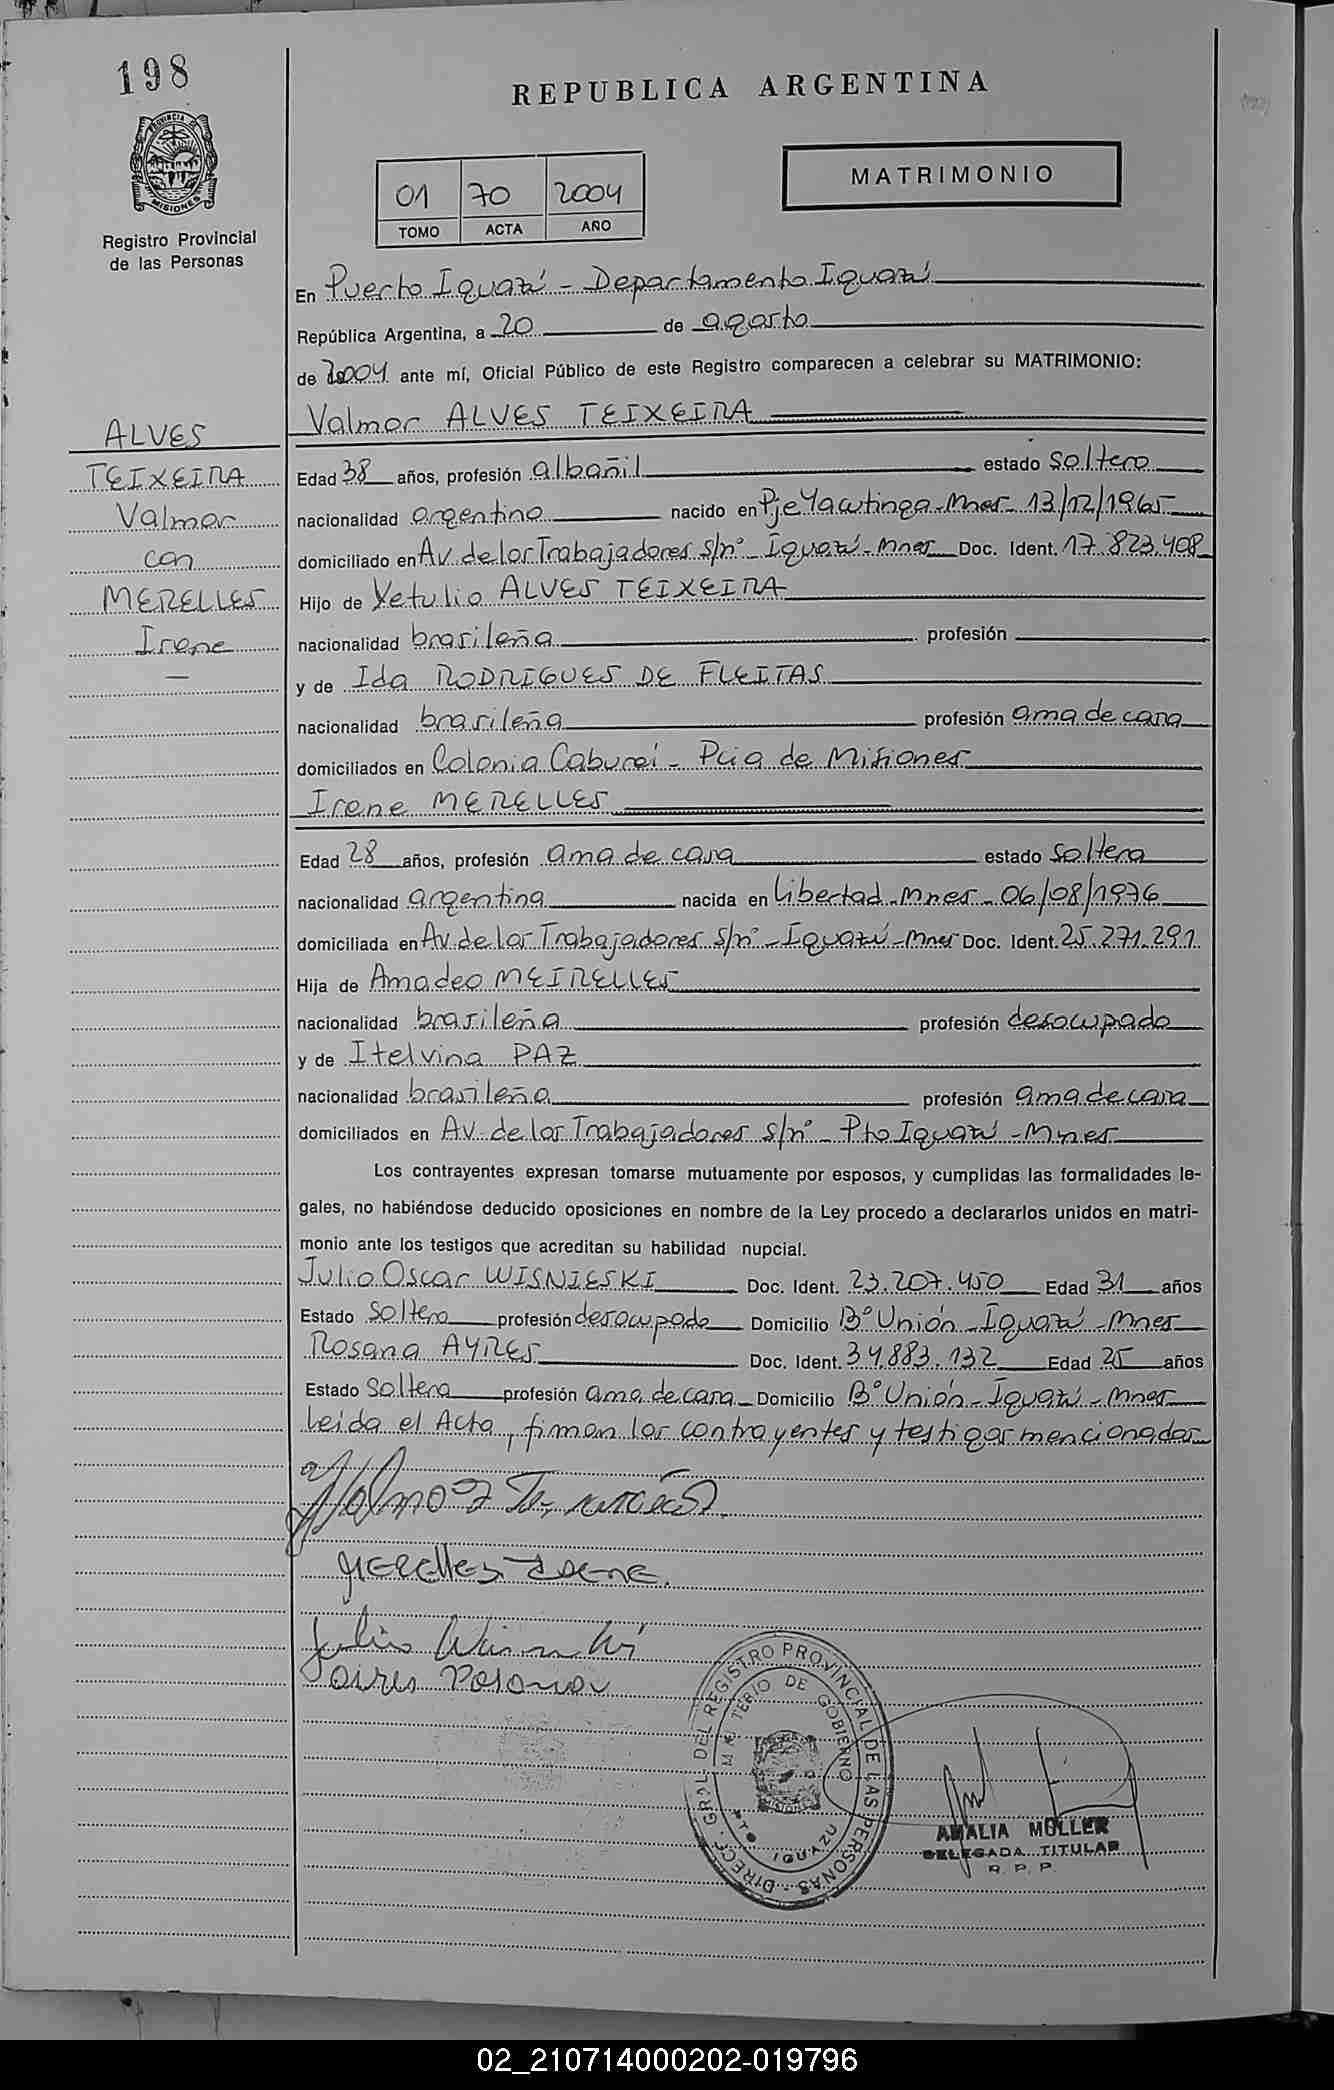 198
PROVINCIA
MISIONES
Registro Provincial
de las Personas
REPUBLICA ARGENTINA
01 70 2004
TOMO ACTA AÑO
MATRIMONIO
En Puerto Iguazú - Departamento Iguazú
República Argentina, a 20 de agosto
de 2004 ante mí, Oficial Público de este Registro comparecen a celebrar su MATRIMONIO:
Valmor ALVES TEIXEIRA
ALVES
TEIXEIRA
Valmor
con
MERELLES
Irene
—
Edad 38 años, profesión albañil estado soltero
nacionalidad argentino nacido en Pje Yacutinga - Mnes - 13/12/1965
domiciliado en Av. de los Trabajadores s/n° - Iguazú - Mnes Doc. Ident. 17.823.408
Hijo de Yetulio ALVES TEIXEIRA
nacionalidad brasileña profesión
y de Ida RODRIGUES DE FLEITAS
nacionalidad brasileña profesión ama de casa
domiciliados en Colonia Cabureí - Pcia de Misiones
Irene MERELLES
Edad 28 años, profesión ama de casa estado soltera
nacionalidad argentina nacida en Libertad - Mnes - 06/08/1976
domiciliada en Av. de los Trabajadores s/n° - Iguazú - Mnes Doc. Ident. 25.271.291
Hija de Amadeo MEIRELLES
nacionalidad brasileña profesión desocupado
y de Itelvina PAZ
nacionalidad brasileña profesión ama de casa
domiciliados en Av. de los Trabajadores s/n° - Pto Iguazú - Mnes
Los contrayentes expresan tomarse mutuamente por esposos, y cumplidas las formalidades le-
gales, no habiéndose deducido oposiciones en nombre de la Ley procedo a declararlos unidos en matri-
monio ante los testigos que acreditan su habilidad nupcial.
Julio Oscar WISNIESKI Doc. Ident. 23.207.450 Edad 31 años
Estado soltero profesión desocupado Domicilio B° Unión - Iguazú - Mnes
Rosana AYRES Doc. Ident. 34.883.132 Edad 25 años
Estado soltera profesión ama de casa Domicilio B° Unión - Iguazú - Mnes
Leida el Acta, firman los contrayentes y testigos mencionados
Merelles Irene.
Julio
aires Rosana
DIRECC. GRAL. DEL REGISTRO PROVINCIAL DE LAS PERSONAS
MINISTERIO DE GOBIERNO
PTO IGUAZU
AMALIA MULLER
DELEGADA TITULAR
R. P. P.
02_210714000202-019796